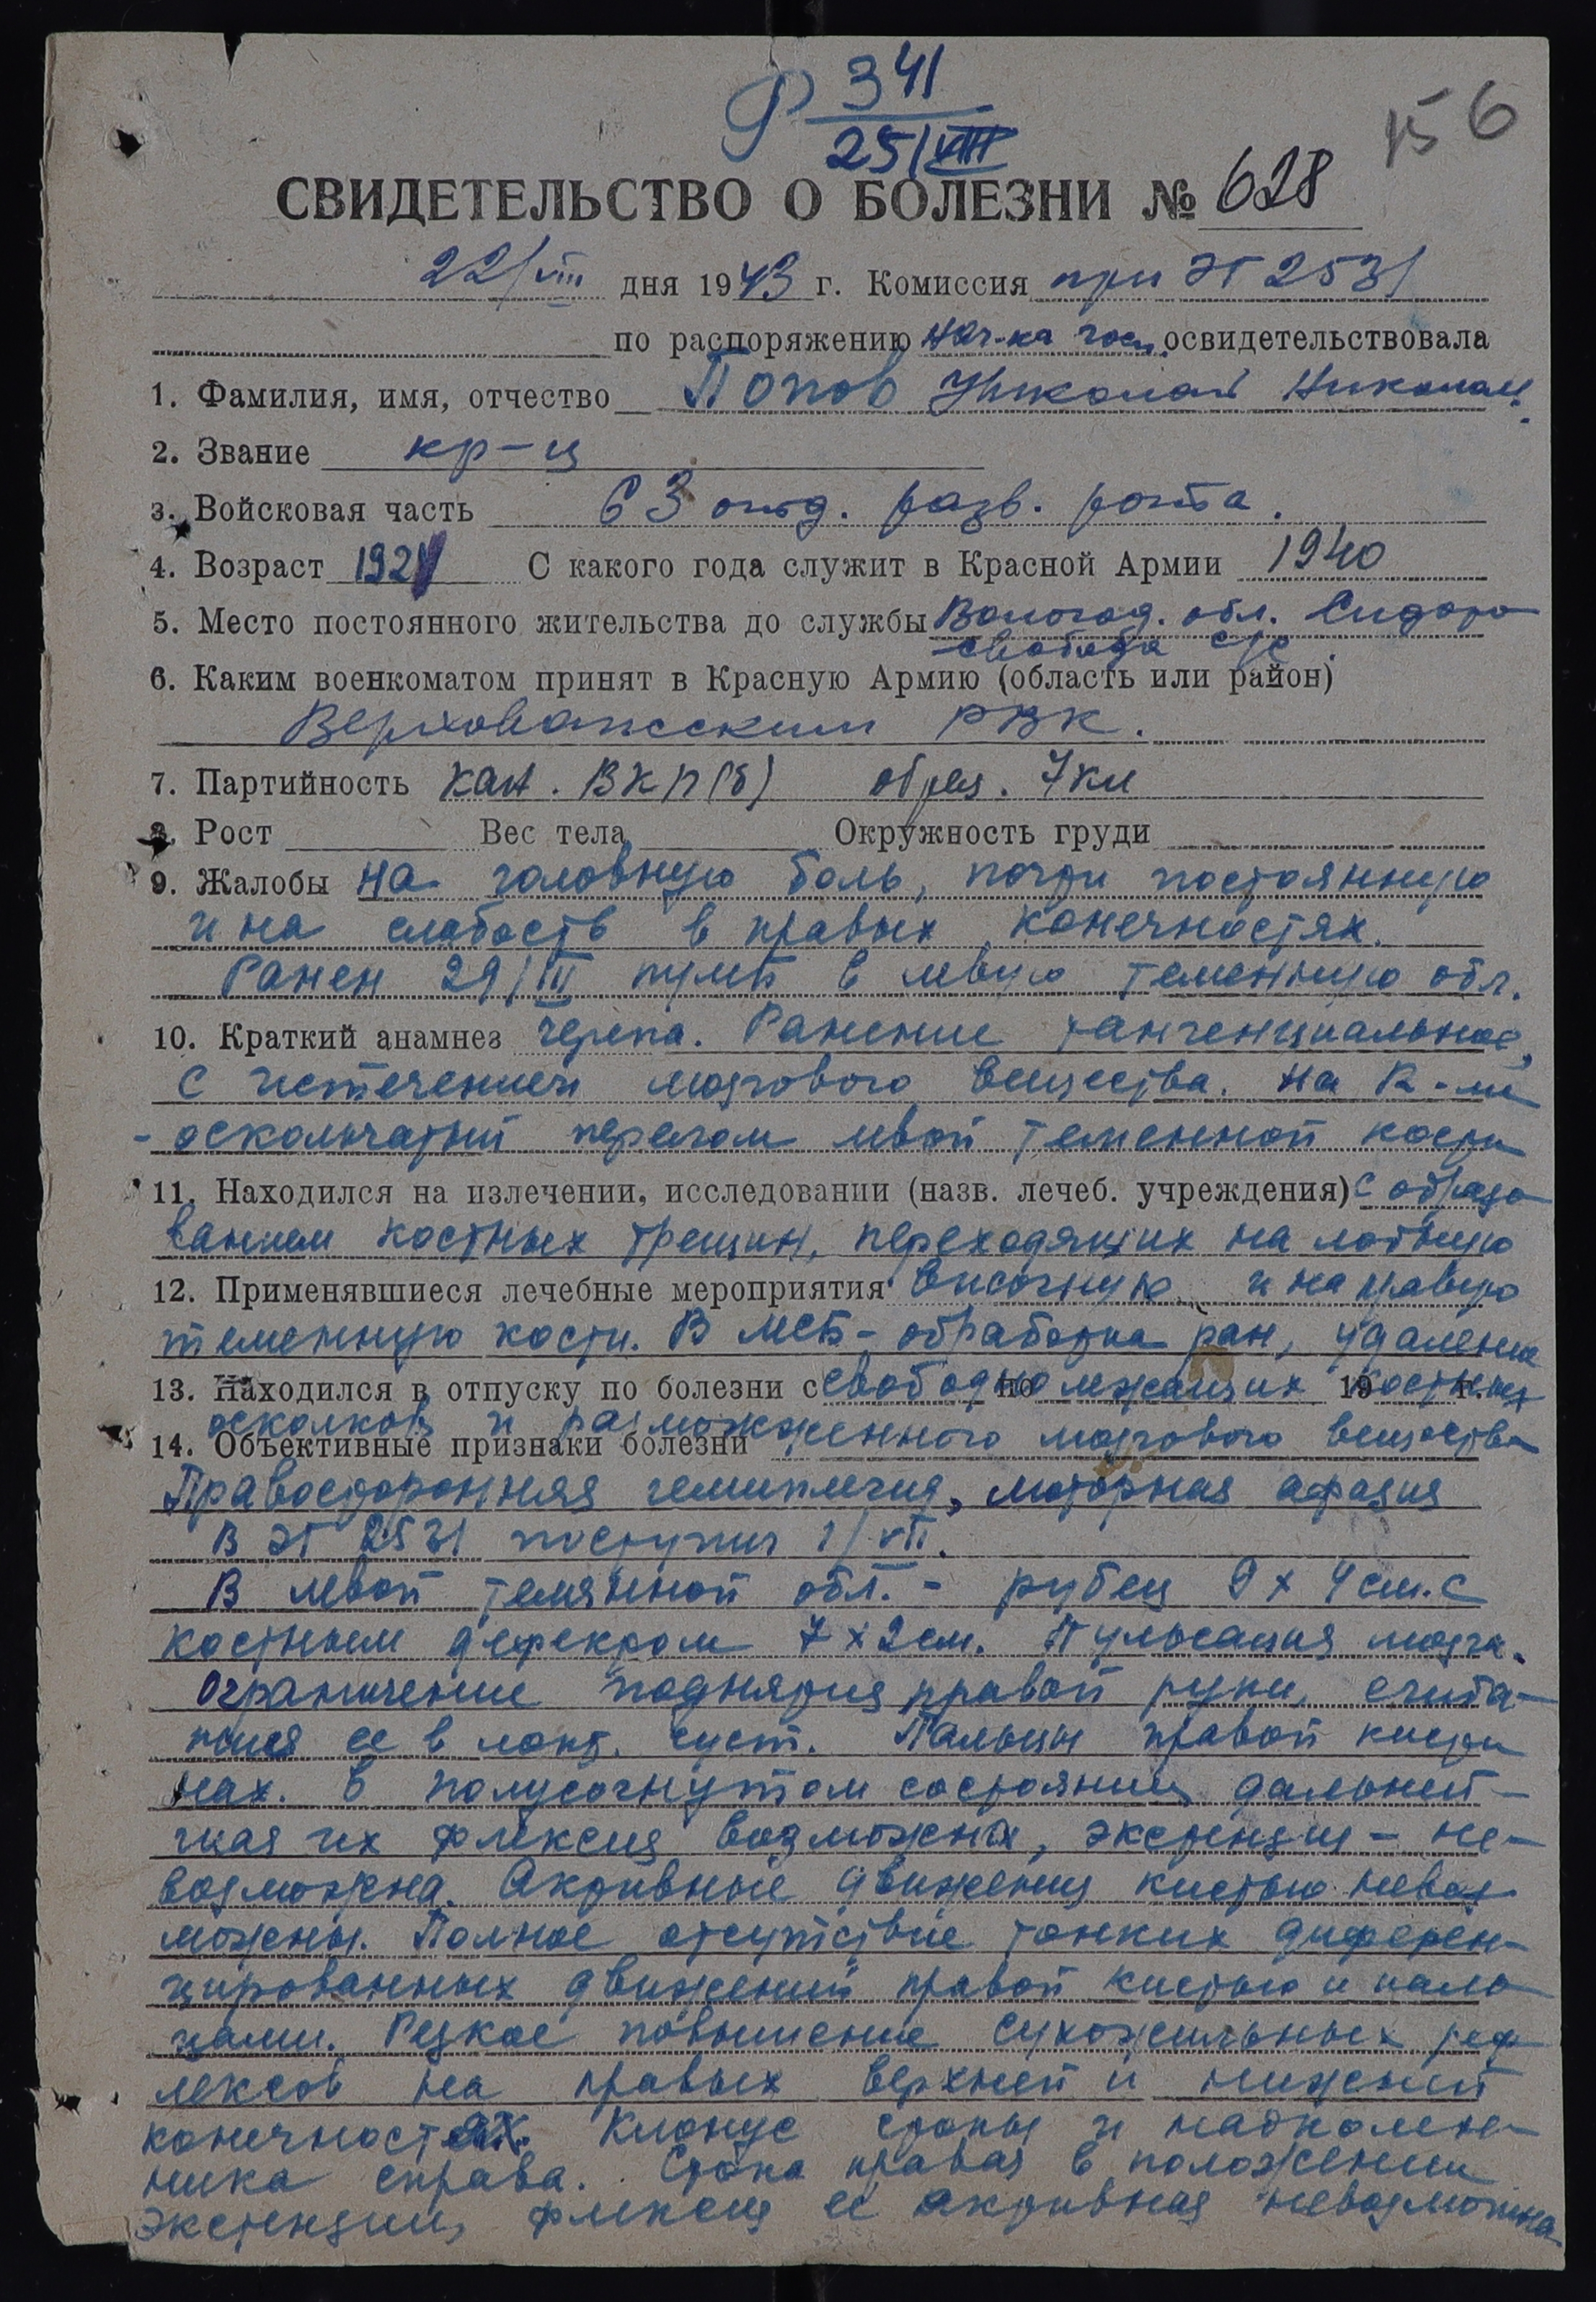 Р 341
25/VIII
156
СВИДЕТЕЛЬСТВО О БОЛЕЗНИ № 628
22/VIII дня 1943 г. Комиссия при ЭГ 2531
по распоряжению нач-ка госп. освидетельствовала
1. Фамилия, имя, отчество Попов Николай Николаев.
2. Звание кр-ц
3. Войсковая часть 63 отд. разв. рота.
4. Возраст 1921 С какого года служит в Красной Армии 1940
5. Место постоянного жительства до службы Вологод. обл. Сидоро
слобода с/с.
6. Каким военкоматом принят в Красную Армию (область или район)
Верховажским РВК.
7. Партийность кан. ВКП(б) образ. 7 кл
8. Рост Вес тела Окружность груди
9. Жалобы на головную боль, почти постоянную
и на слабость в правых конечностях.
Ранен 29/III пулей в левую теменную обл.
10. Краткий анамнез черепа. Ранение тангенциальное,
с истечением мозгового вещества. На R-ме
- оскольчатый перелом левой теменной кости
11. Находился на излечении, исследовании (назв. лечеб. учреждения) с образо
ванием костных трещин, переходящих на лобную
12. Применявшиеся лечебные мероприятия височную и на правую
теменную кости. В МСБ - обработка ран, удаление
13. Находился в отпуску по болезни с свободно по лежащих 19 костных г.
осколков и размозженного мозгового вещества
14. Объективные признаки болезни
Правосторонняя гемиплегия, моторная афазия
В ЭГ 2531 поступил 1/VII.
В левой темянной обл. - рубец 9 х 4 см. с
костным дефектом 7 х 2 см. Пульсация мозга.
Ограничение поднятия правой руки, сгиба-
ния ее в локт. суст. Пальцы правой кисти
нах. в полусогнутом состоянии дальней-
шая их флексия возможна, экстенция - не-
возможна. Активные движения кистью невоз
можны. Полное отсутствие тонких диферен-
цированных движений правой кистью и паль
цами. Резкое повышение сухожильных реф
лексов на правых верхней и нижней
конечностях. Клонус стопы и надколен-
ника справа. Стопа правая в положении
экстенции, флексия ее активная невозможна